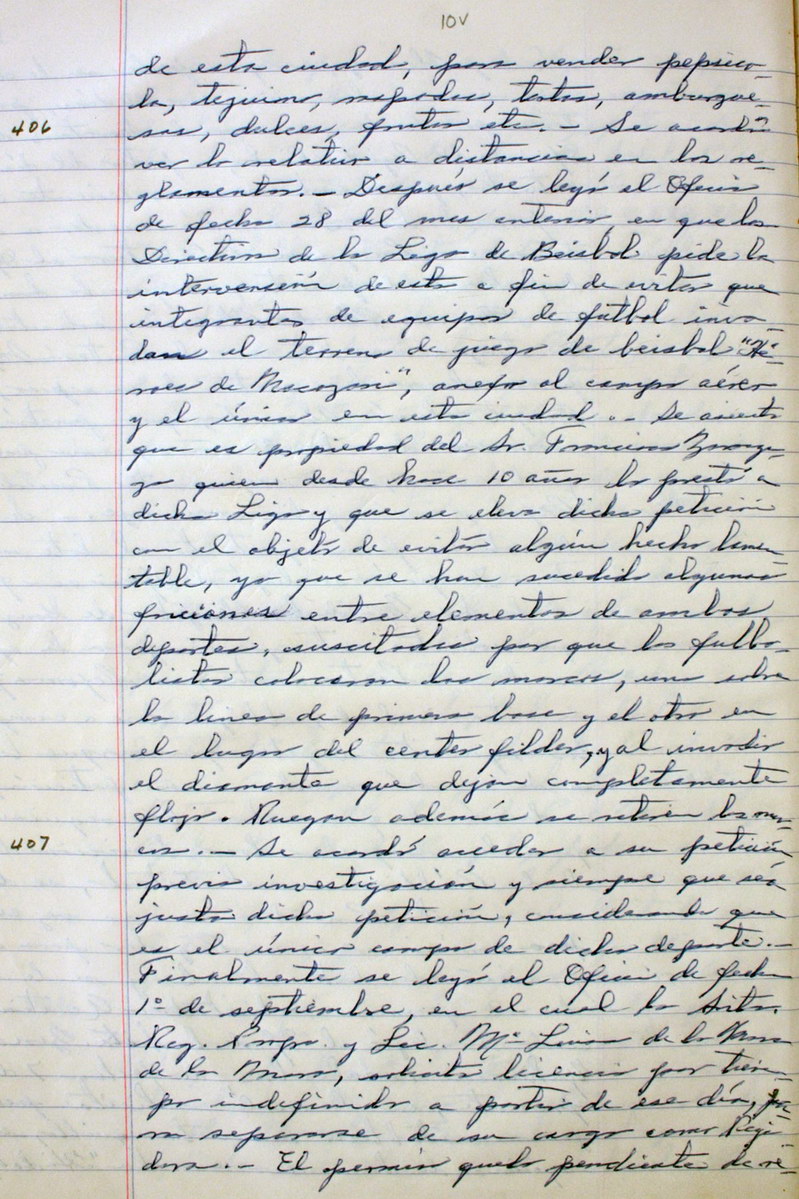 10V
de esta ciudad, para vender pepsico-
la, tejuino, raspados, tortas, amburgue-
406
sas, dulces, frutas etc. - Se acordó
ver lo relativo a distancias en los re-
glamentos. - Después se leyó el Oficio
de fecha 28 del mes anterior, en que los
Directivos de la Liga de Beisbol pide la
interversión de esta a fin de evitar que
integrantes de equipos de futbol inva-
dan el terreno de juego de beisbol "Hé-
roes de Nacozari", anexo al campo aéreo
y el único en esta ciudad. - Se asienta
que es propiedad del Sr. Francisco
quien desde hace 10 años lo prestó a
dicha Liga y que se eleva dicha petición
con el objeto de evitar algún hecho lamen-
table, ya que se han sucedido algunas
fricciones entre elementos de ambos
deportes, suscitadas por que los futbo-
listas colocaron dos marcos, uno sobre
la linea de primera base y el otro en
el lugar del center filder, y al invadir
el diamante que dejan completamente
flojo. Ruegan además se retiren los mar-
407
cos. - Se acordó acceder a su petición
previa investigación y siempre que sea
justa dicha petición, considerando que
es el único campo de dicho deporte. -
Finalmente se leyó el Oficio de fecha
1º de septiembre, en el cual la Srita.
Reg. Propa. y Lic. Mª Luisa de la
de la Mora, solicita licencia por tiem-
po indefinido a partir de ese día, pa-
ra separarse de su cargo como Regi-
dora. - El permiso quedó pendiente de re-